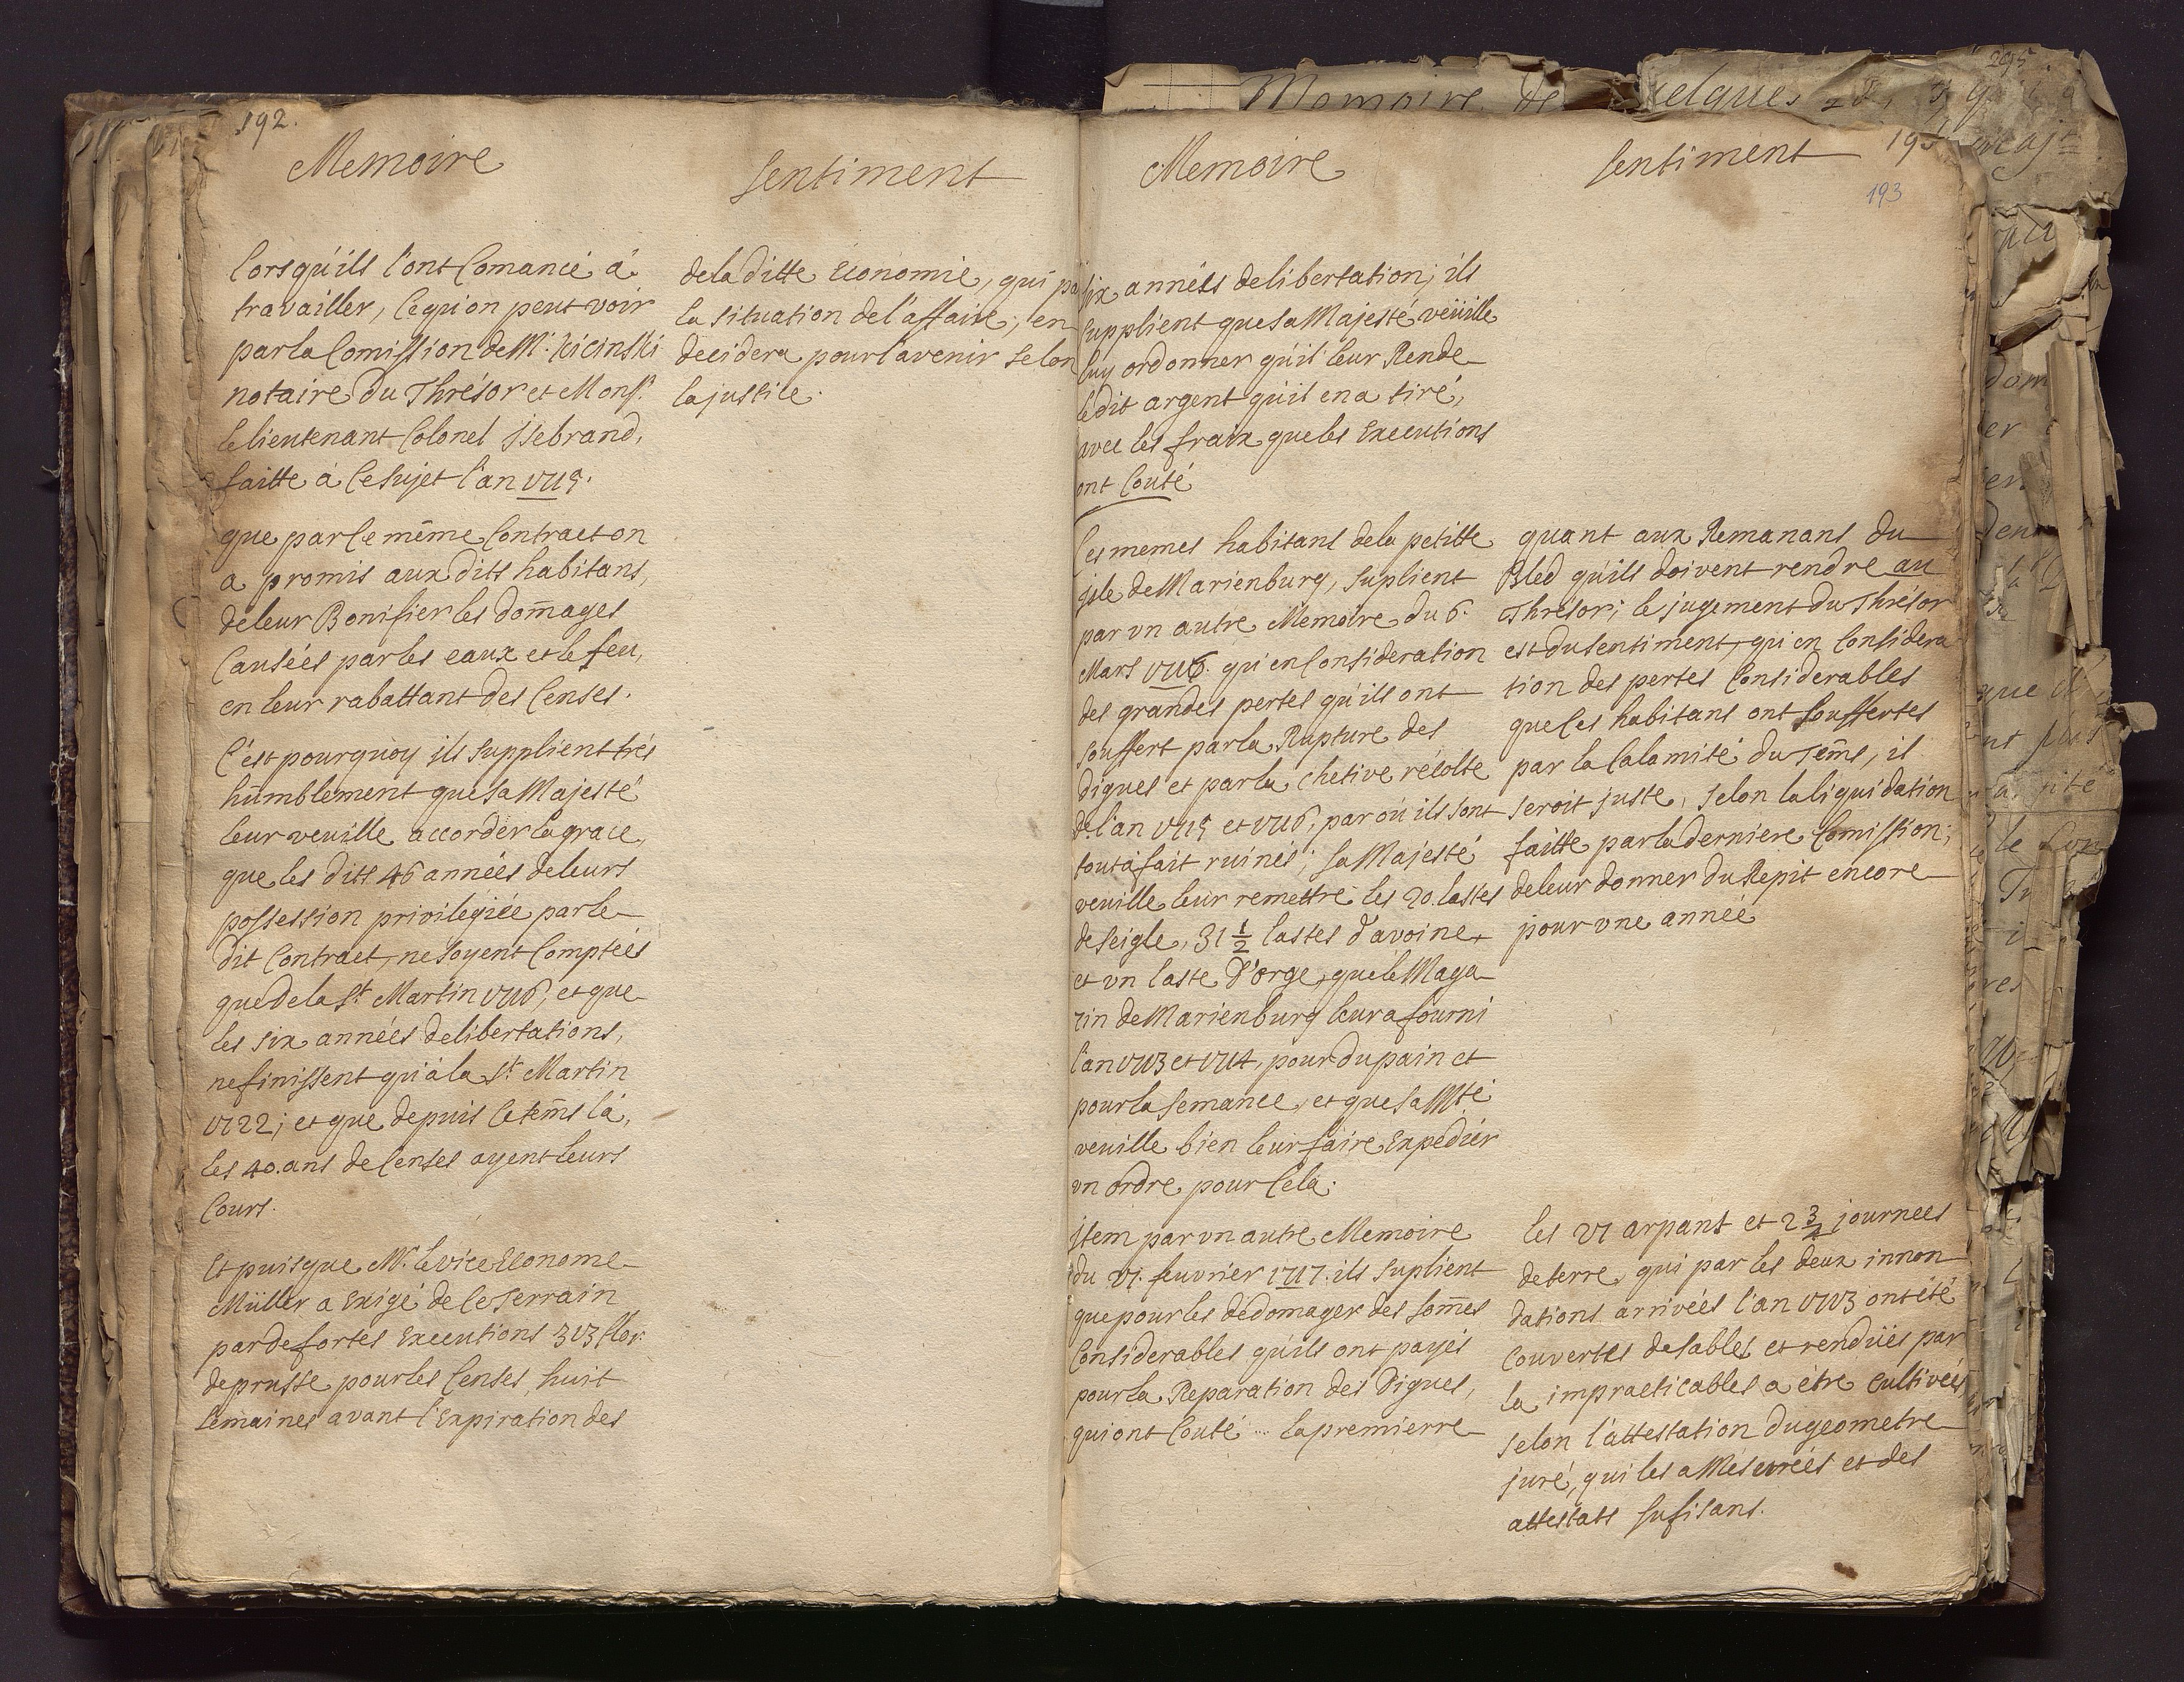 192.
Memoire
lorsqu'ils l'ont Comancé á
travailler, Ce qu'on peut voir
par la Comission de Mr. Kicinski
notaire du Thrésor et Monsr.
le lieutenant Colonel Jsebrand,
faitte á Ce sujet l'an 1715.
que par Ce même Contract on
a promis aux dits habitans,
de leur Bonifier les dom̄ages
Causées par les eaux et le feu,
en leur rabattant des Censes.
C'ést pourquoy ils supplient trés
humblement que sa Majesté
leur veuille accorder la grace,
que les dits 46 années de leurs
possession privilégiée par le
dit Contract, ne soyent Comptées
que de la St. Martin 1716, et que
les six années de libertations,
ne finissent qu'á la St. Martin
1722; et que depuis Ce tem̄s lá,
les 40. ans de Censes ayent leurs
Cours.
Et puisque Mr. le vice Econome
Müller a Exigé de Ce Terrain
par de fortes Executions 313 flor:
de prusse pour les Censes, huit
semaines avant l'Expiration des
Sentiment
de la ditte Economie, qui pa
la situation de l'affaire, en
decidera pour l'avenir selon
la justice.
Memoire
six années de libertation; ils
supplient que sa Majesté veüille
luy ordonner qu'il leur Rende
ledit argent qu'il en a tiré,
avec les fraix que les Executions
ont Couté
Les memes habitans de la petitte
jsle de Marienburg, suplient
par vn autre Memoire du 6.
Mars 1716. qu'en Consideration
des grandes pertes qu'ils ont
souffert par la Rupture des
digues et par la chetive récolte
de l'an 1715 et 1716, par où ils sont
tout á fait ruinés; sa Majesté
veuille leur remettre les 20. lastes
de seigle, 31 1/2 lastes d'avoine,
et vn laste d'orge, que le Maga
zin de Marienburg leur a fourni
l'an 1713 et 1714, pour du pain et
pour la semance, et que sa Mté
veuille bien leur faire Expedier
vn ordre pour Cela.
jtem par vn autre Memoire
du 21. feuvrier 1717. ils suplient
que pour les dédomager des som̄es
Considerables qu'ils ont payés
pour la Reparation des Digues,
qui ont Couté ... la premierre
Sentiment
193
quant aux Remanans du
Bled qu'ils doivent rendre au
Thrésor; le jugement du Thrésor
est du sentiment, qu'en Considera
tion des pertes Considerables
que Ces habitans ont souffertes
par la Calamité du Tem̄s, il
seroit juste, selon la liquidation
faitte par la derniere Comission,
de leur donner du Repit encore
pour vne année
les 21 arpant et 2 3/4 journees
de terre, qui par les deux innon
dations arrivées l'an 1713 ont été
Couvertes de sables et renduës par
la impracticables a être cultivées
selon l'attestation du geometre
juré, qui les a Mesurées et des
attestats sufisans.
295
Memoire de quelques